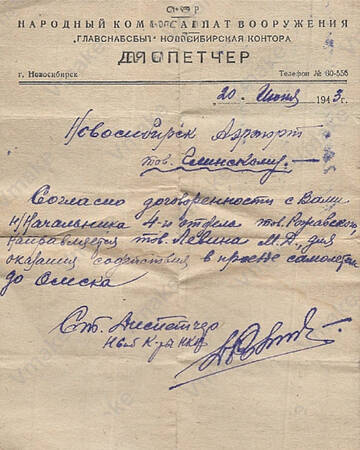 СССР
НАРОДНЫЙ КОМИССАРИАТ ВООРУЖЕНИЯ
„ГЛАВСНАБСБЫТ" НОВОСИБИРСКАЯ КОНТОРА
ДИСПЕТЧЕР
г. Новосибирск Телефон № 60-556
20 Июня 1943 г.
Новосибирск Аэропорт
тов. Глинскому.
Согласно договоренности с Вами
Н/Начальника 4-го отдела тов.
направляется тов. Левина М.Д. для
оказания содействия в проезде самолетом
до Омска
Ст. Диспетчер
К-ра НКВ